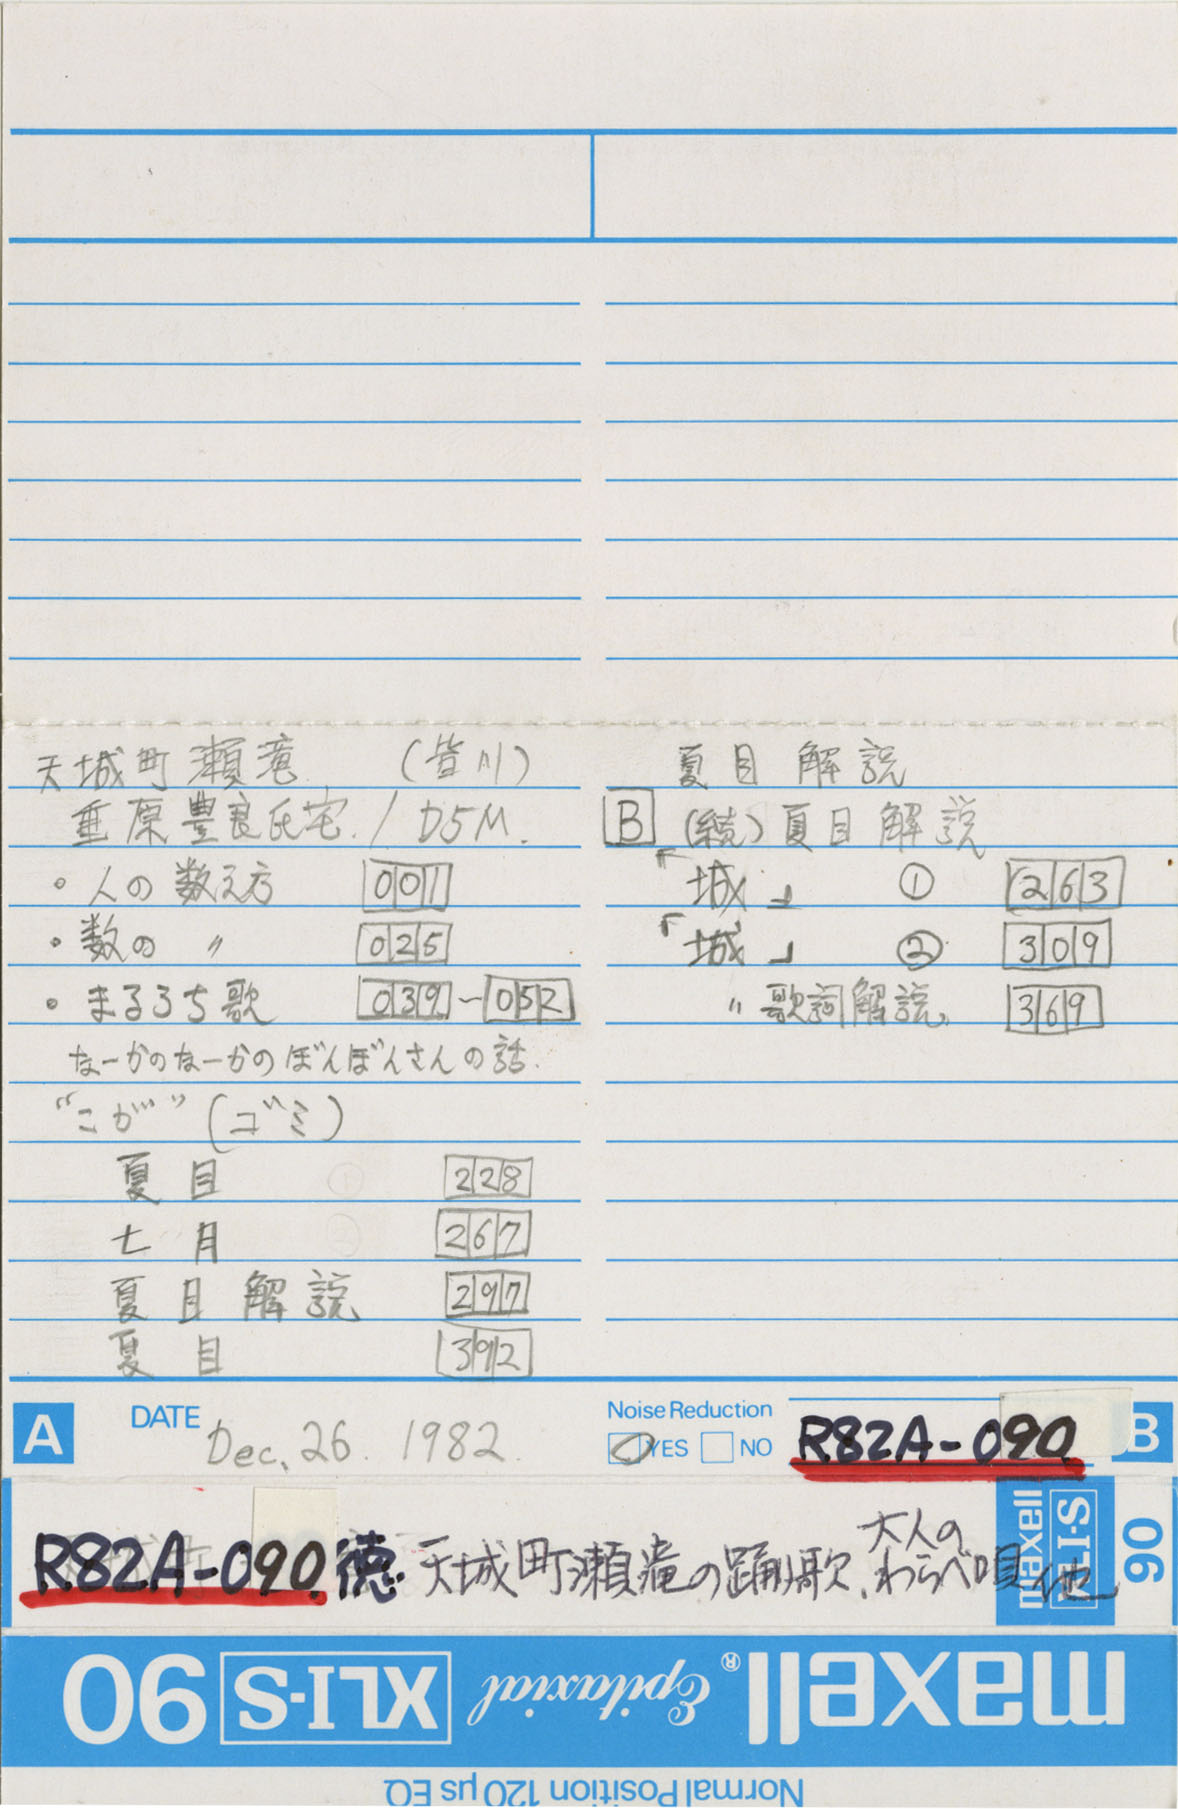 天城町瀬滝 (皆川)
重原豊良氏宅. / D5M.
・人の数え方 001
・数の 〃 025
・まるうち歌 039 ~ 052
なーかのなーかのぼんぼんさんの話.
"こが" (ゴミ)
夏目 ① 228
七月 ② 267
夏目解説 297
夏目 392
夏目解説
B (続) 夏目解説
「城」 ① 263
「城」 ② 309
〃 歌詞解説 369
A DATE Dec. 26. 1982.
Noise Reduction
YES NO
R82A-090
B
R82A-090 徳. 天城町瀬滝の踊り歌、大人のわらべ唄 他
maxell
XLI-S
90
maxell® Epitaxial XLI-S 90
Normal Position 120 μs EQ